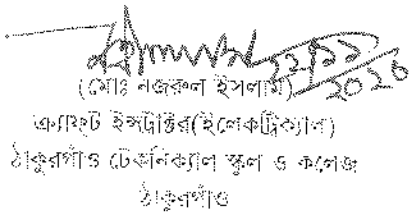 (মোঃ নজরুল ইসলাম)
ক্র্যাফট ইন্সট্রাক্টর(ইলেকট্রিক্যাল)
ঠাকুরগাঁও টেকনিক্যাল স্কুল ও কলেজ
ঠাকুরগাঁও